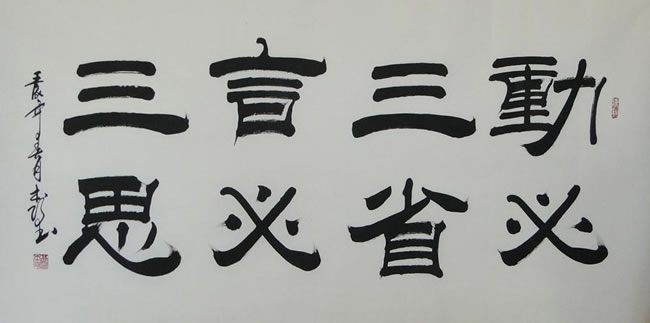 動必
三省
言必
三思